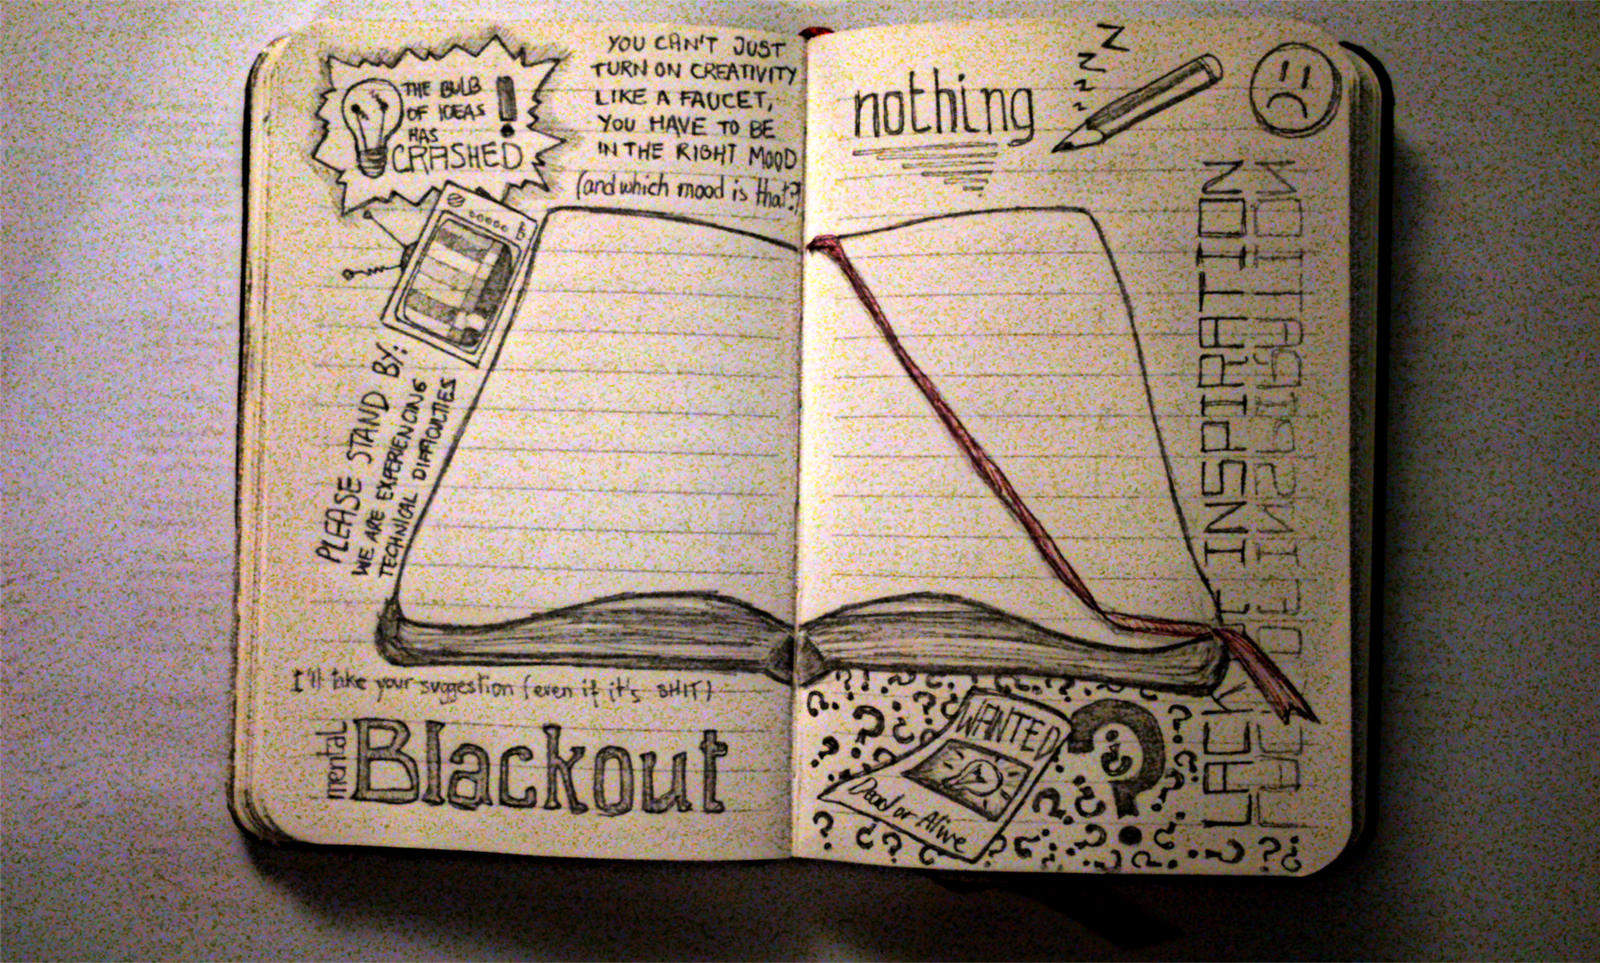 THE BULB
OF IDEAS
HAS
CRASHED
!
YOU CAN'T JUST
TURN ON CREATIVITY
LIKE A FAUCET,
YOU HAVE TO BE
IN THE RIGHT MOOD
(and which mood is that?)
PLEASE STAND BY:
WE ARE EXPERIENCING
TECHNICAL DIFFICULTIES
I'll take your suggestion (even if it's SHIT)
mental
Blackout
nothing
Z Z Z Z
LACK OF INSPIRATION
LACK OF INSPIRATION
WANTED
Dead or Alive
?